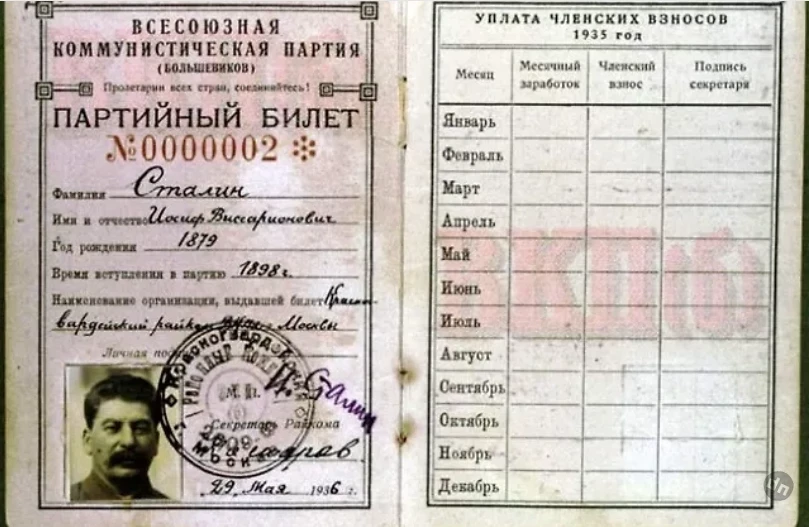 ВСЕСОЮЗНАЯ
КОММУНИСТИЧЕСКАЯ ПАРТИЯ
(БОЛЬШЕВИКОВ)
Пролетарии всех стран, соединяйтесь!
ПАРТИЙНЫЙ БИЛЕТ
№0000002
Фамилия Сталин
Имя и отчество Иосиф Виссарионович
Год рождения 1879
Время вступления в партию 1898 г.
Наименование организации, выдавшей билет Красно
гвардейский райком г. Москвы
Личная
И. Сталин
Красногвардейский
Районный
М. П.
Секретарь Райкома
29 Мая 1936 г.
УПЛАТА ЧЛЕНСКИХ ВЗНОСОВ
1935 год
Месяц Месячный заработок Членский взнос Подпись секретаря
Январь
Февраль
Март
Апрель
Май
Июнь
Июль
Август
Сентябрь
Октябрь
Ноябрь
Декабрь
ВКП(б)